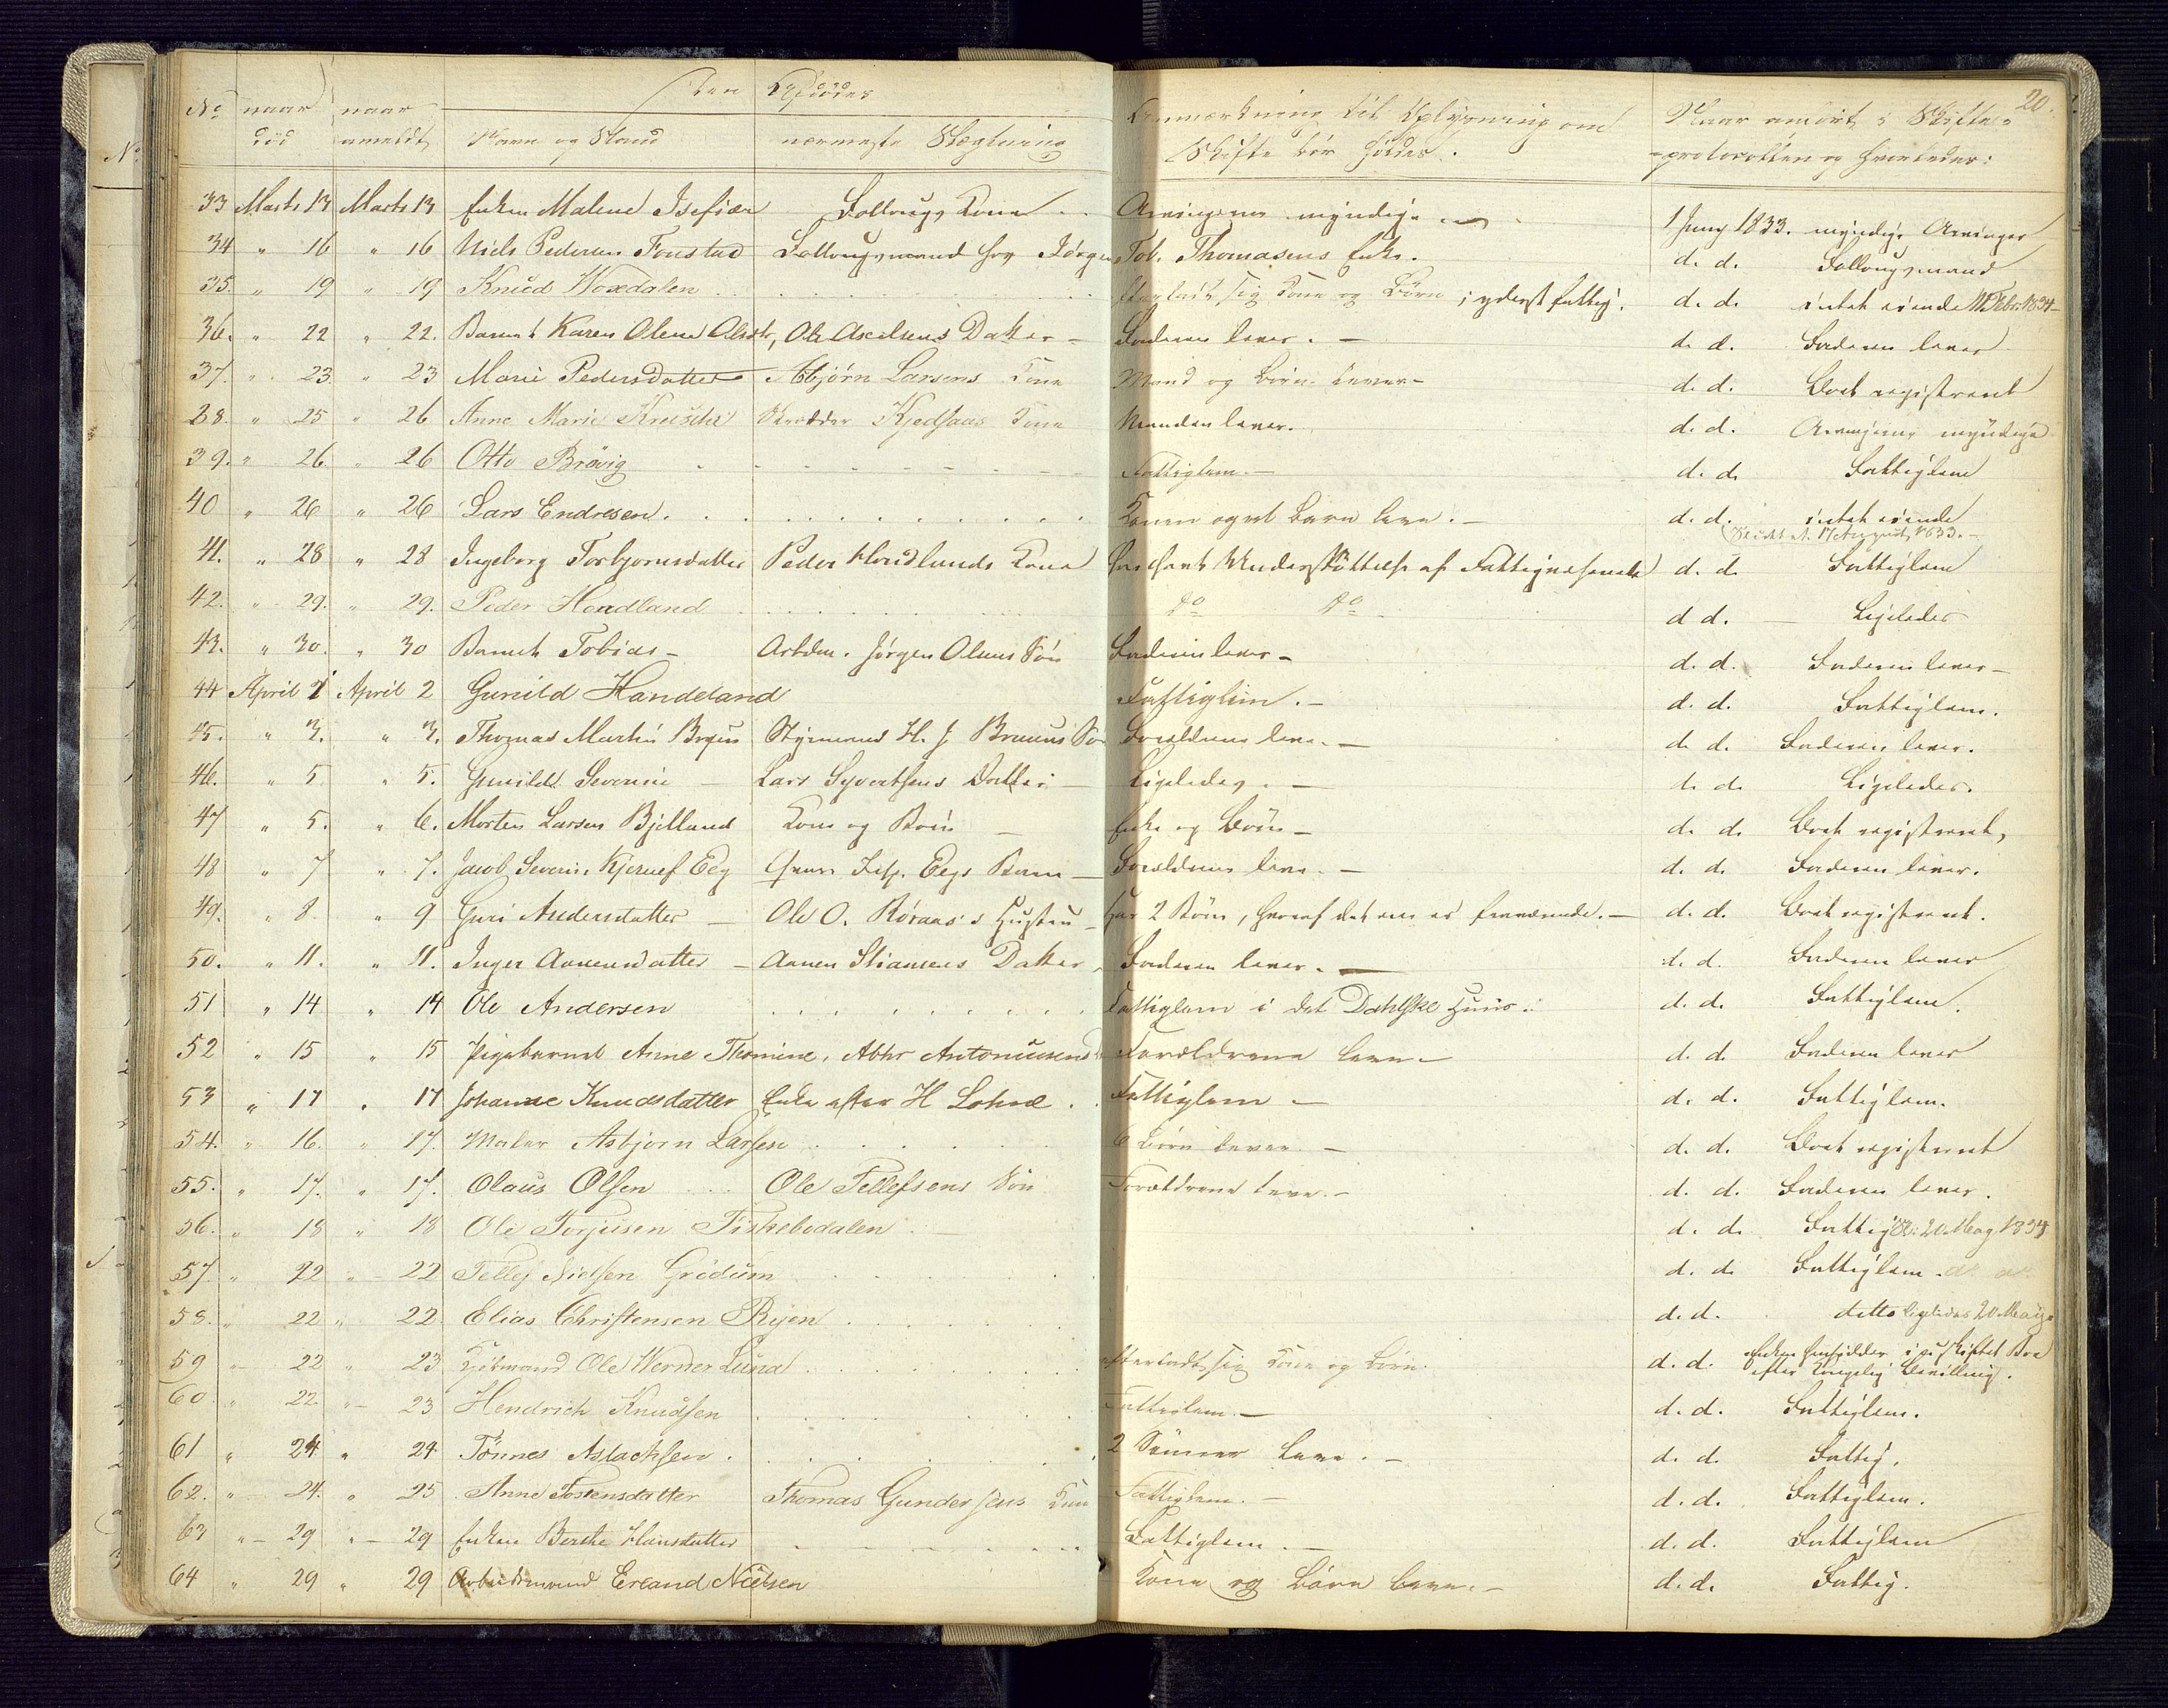 20.
den Afdødes
No naar død naar anmeldt Navn og Stand nærmeste Slægtning Anmærkning til Oplysning om Skifte bør holdes. Naar anført i Skifte-protocollen og hvorledes:
33 Marts 13 Marts 13 Enken Malene Kone Arvingerne myndige 1 Juny 1833. myndige Arvinger
34 " 16 " 16 Niels Pedersen Fonstad hos Jørgen Tob. Thomasens Enke. d. d.
35. " 19 " 19 Knud sig Kone og Børn i yderst fattig. d. d. intet eiende Febr. 1834
36. " 22 " 22. Barnet Karen Olene Olsdtr, Ole Axelsens Datter Faderen lever. d. d. Faderen lever
37. " 23 " 23 Marie Pedersdatter Asbjørn Larsens Kone Mand og Børn lever d. d. Boet registreret
38. " 25 " 26 Anne Marie Skrædder Kjedsaas Kone Manden lever. d. d. Arvingerne myndige
39. " 26 " 26 Otto Brøvig Fattiglem. d. d. Fattiglem
40 " 26 " 26 Lars Endresen. Konen og et Barn leve. d. d. intet eiende
17 August 1833.
41. " 28 " 28 Ingeborg Torbjørnsdatter Peder Hondlands Kone har havt Understøttelse af Fattigvæsenet d. d. Fattiglem
42. " 29. " 29. Peder Hondland do do d d. Ligeledes
43. " 30. " 30 Barnet Tobias Arbdm. Jørgen Olsens Søn Faderen lever d. d. Faderen lever
44 April 1 April 2 Gunild Handeland Fattiglem. d. d. Fattiglem.
45. " 3. " 3. Thomas Martin Styrmand H. J. Bruuns Søn Forældrene leve. d. d. Faderen lever.
46. " 5 " 5. Gunild Severine Lars Syvertsens Datter Ligeledes. d. d. Ligeledes.
47 " 5. " 6. Morten Larsen Bjelland Kone og Børn Enke og Børn d. d. Boet registreret,
48 " 7 " 7. Jacob Severin Eeg Eegs Barn Forældrene leve. d. d. Faderen lever.
49. " 8. " 9 Guri Andersdatter Ole O. Røraas's Hustru har 2 Børn, hvoraf det ene er fraværende. d. d. Boet registreret.
50. " 11. " 11. Inger Aanensdatter Aanen Stiansens Datter Faderen lever. d. d. Faderen lever
51 " 14 " 14 Ole Andersen Fattiglem i det Dahlske Huus. d. d. Fattiglem.
52 " 15 " 15 Pigebarnet Anne Thomine, Abhr Antoniusens Forældrene leve d. d. Faderen lever
53 " 17 " 17 Johanne Knudsdatter Enke efter H Fattiglem d. d. Fattiglem.
54. " 16. " 17. Maler Asbjørn Larsen 6 Børn lever. d. d. Boet registreret
55. " 17. " 17. Olaus Olsen Ole Tellefsens Søn Forældrene leve. d. d. Faderen lever.
56. " 18 " 18 Ole Torjusen Fiskebodalen d. d. Fattig 20 May 1834
57 " 22 " 22 Tellef Nielsen Grødum d. d. Fattiglem.
58. " 22 " 22 Elias Christensen Ryen d. d. ditto ligeledes 20 May
59 " 22 " 23 Kjøbmand Ole Werner Lund efterladt sig Kone og Børn. d. d. Enken hensidder i uskiftet Boe efter kongelig Bevilling.
60 " 22. " 23 Hendrich Knudsen Fattiglem. d. d. Fattiglem.
61 " 24 " 24 Tønnes Aslachsen. 2 Sønner leve. d. d. Fattig.
62. " 24. " 25 Anne Thomas Gundersens Kone Fattiglem. d. d. Fattiglem.
63 " 29 " 29 Enken Berthe Hansdatter Fattiglem. d. d. Fattiglem
64 " 29 " 29 Arbeidsmand Erland Nielsen Kone og Børn leve. d. d. Fattig.